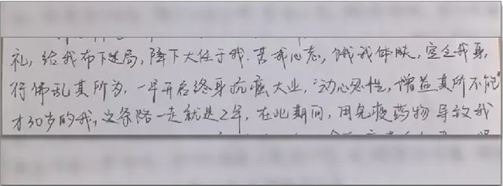 礼，给我布下迷局，降下大任于我。苦我心志，饿我体肤，空乏我身，
行拂乱其所为，一早开启终身抗癌大业，动心忍性，增益其所不能
才30岁的我，这条路一走就是2年，在此期间，因免疫药物导致我